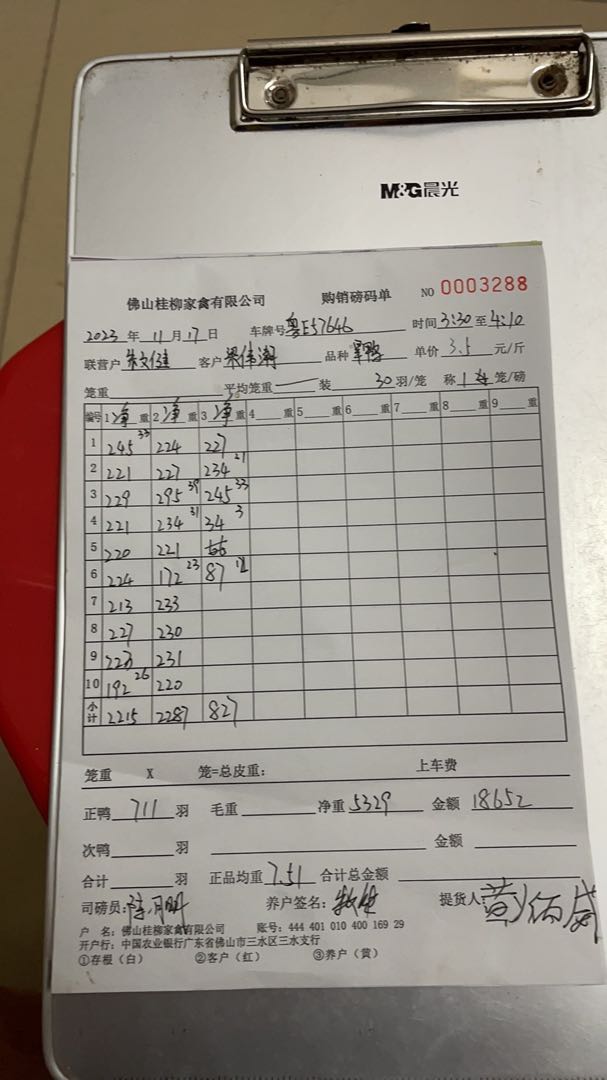 M&G晨光
佛山桂柳家禽有限公司 购销磅码单 NO 0003288
2023 年 11 月 17 日 车牌号 粤E57646 时间 3:30 至 4:10
联营户 客户 梁伟潮 品种 单价 3.5 元/斤
笼重 平均笼重 装 30 羽/笼 称 1 笼/磅
编号 1 净 重 2 净 重 3 净 重 4 重 5 重 6 重 7 重 8 重 9 重
1 245 33 224 227
2 221 227 234 27
3 229 295 39 245 33
4 221 234 31 34 3
5 220 221 66
6 224 172 23 87 12
7 213 233
8 227 230
9 223 231
10 192 26 220
小计 2215 2287 827
笼重 X 笼=总皮重: 上车费
正鸭 711 羽 毛重 净重 5329 金额 18652
次鸭 羽 金额
合计 羽 正品均重 7.51 合计总金额
司磅员: 养户签名: 提货人
户 名: 佛山桂柳家禽有限公司 账号: 444 401 010 400 169 29
开户行: 中国农业银行广东省佛山市三水区三水支行
①存根(白) ②客户(红) ③养户(黄)